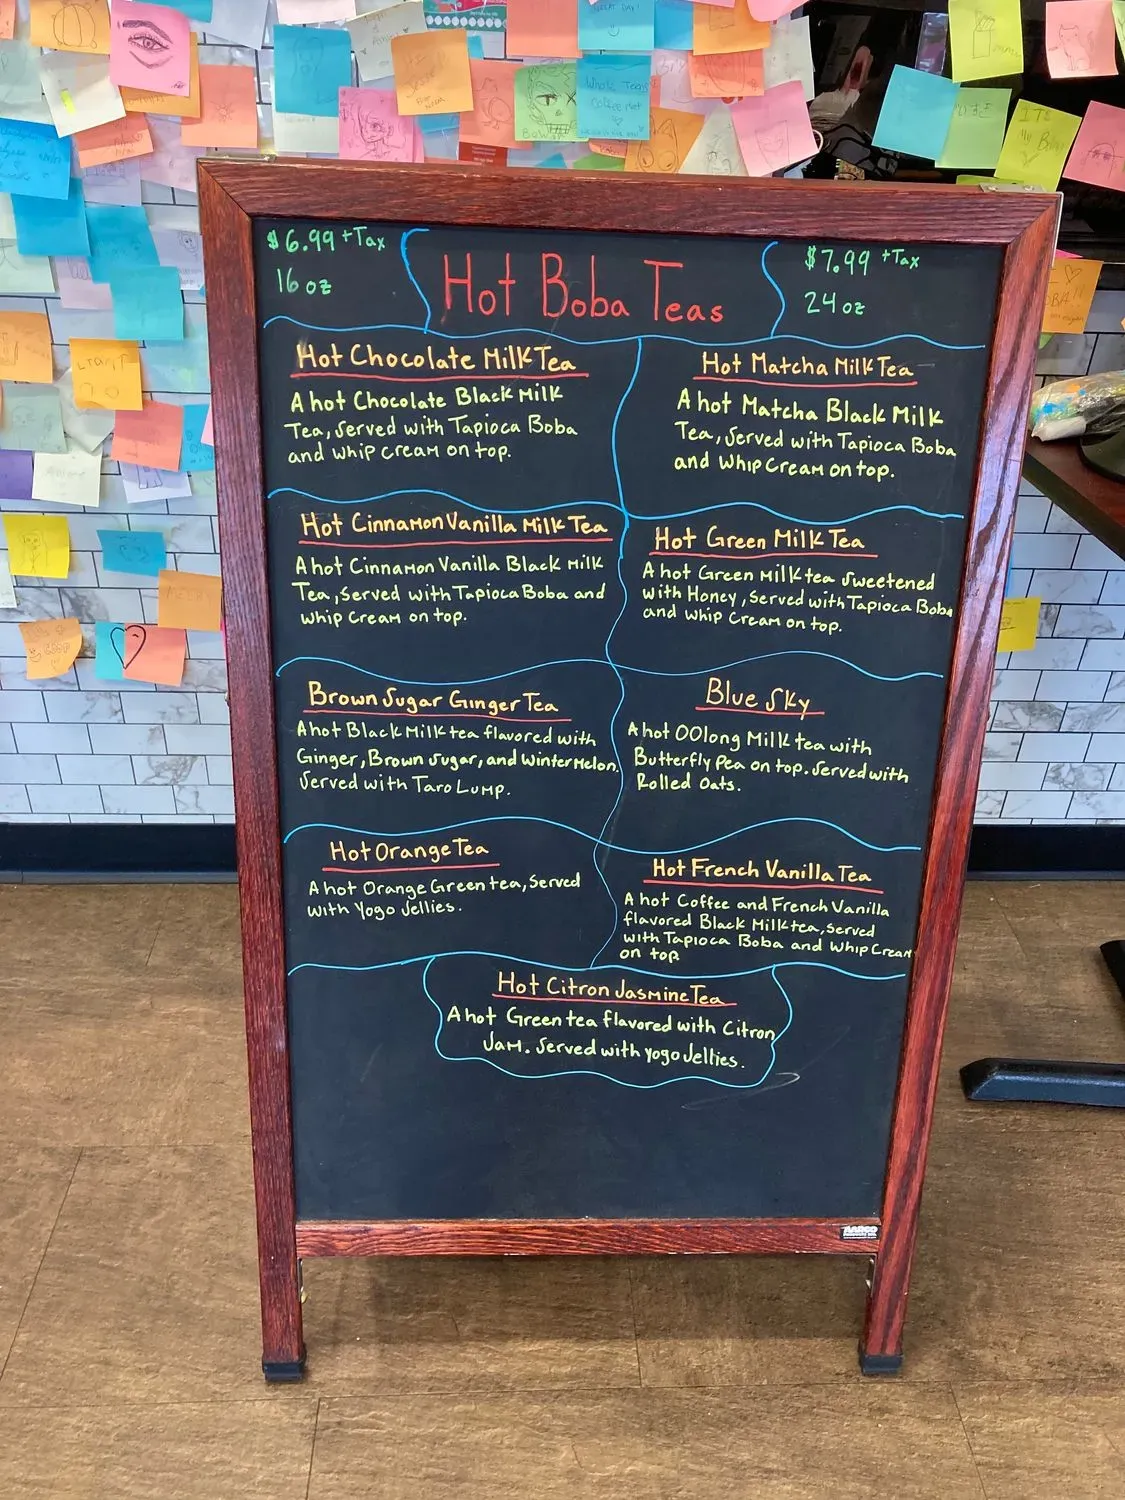 $6.99 +Tax
16 oz
Hot Boba Teas
$7.99 +Tax
24 oz
Hot Chocolate Milk Tea
A hot Chocolate Black Milk
Tea, Served with Tapioca Boba
and whip cream on top.
Hot Matcha Milk Tea
A hot Matcha Black Milk
Tea, Served with Tapioca Boba
and whip Cream on top.
Hot Cinnamon Vanilla Milk Tea
A hot Cinnamon Vanilla Black Milk
Tea, served with Tapioca Boba and
whip Cream on top.
Hot Green Milk Tea
A hot Green Milk tea sweetened
with Honey, Served with Tapioca Boba
and whip Cream on top.
Brown Sugar Ginger Tea
A hot Black Milk tea flavored with
Ginger, Brown Sugar, and Winter Melon.
Served with Taro Lump.
Blue Sky
A hot OOlong Milk tea with
Butterfly Pea on top. Served with
Rolled Oats.
Hot Orange Tea
A hot Orange Green tea, Served
with Yogo Jellies.
Hot French Vanilla Tea
A hot Coffee and French Vanilla
flavored Black Milk tea, served
with Tapioca Boba and Whip Cream
on top
Hot Citron Jasmine Tea
A hot Green tea flavored with Citron
Jam. Served with yogo Jellies.
AARCO